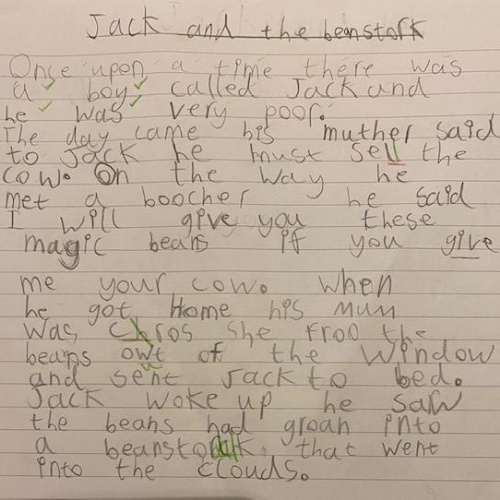 Jack and the beanstork
Once upon a time there was
a boy called Jack and
he was very poor.
The day came his muther said
to Jack he must sell the
cow. On the way he
met a boocher he said
I will give you these
magic beans if you give
me your cow. When
he got Home his Mum
was chros She Froo the
beans owt of the Window
and sent Jack to bed.
Jack woke up he saw
the beans had groan into
a beanstolk that went
into the clouds.